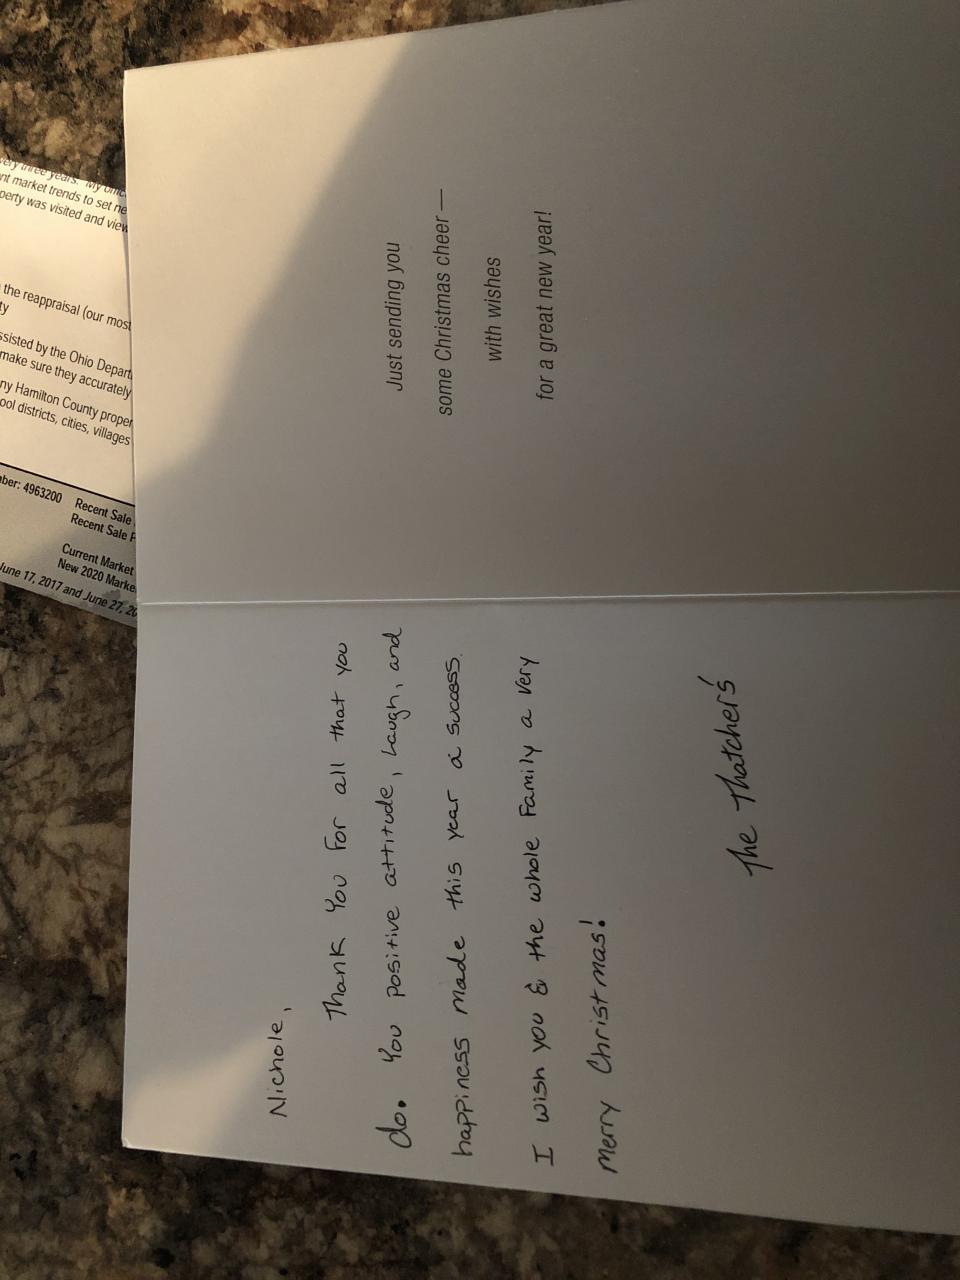 Nichole,
Thank You For all that you
do. You positive attitude, Laugh, and
happiness made this year a success.
I wish you & the whole Family a very
Merry Christmas!
The Thatcher's
Just sending you
some Christmas cheer —
with wishes
for a great new year!
very three years. My offic
nt market trends to set ne
perty was visited and view
the reappraisal (our most
ty
ssisted by the Ohio Depart
make sure they accurately
ny Hamilton County proper
ool districts, cities, villages
ber: 4963200 Recent Sale
Recent Sale P
Current Market
New 2020 Marke
June 17, 2017 and June 27, 20